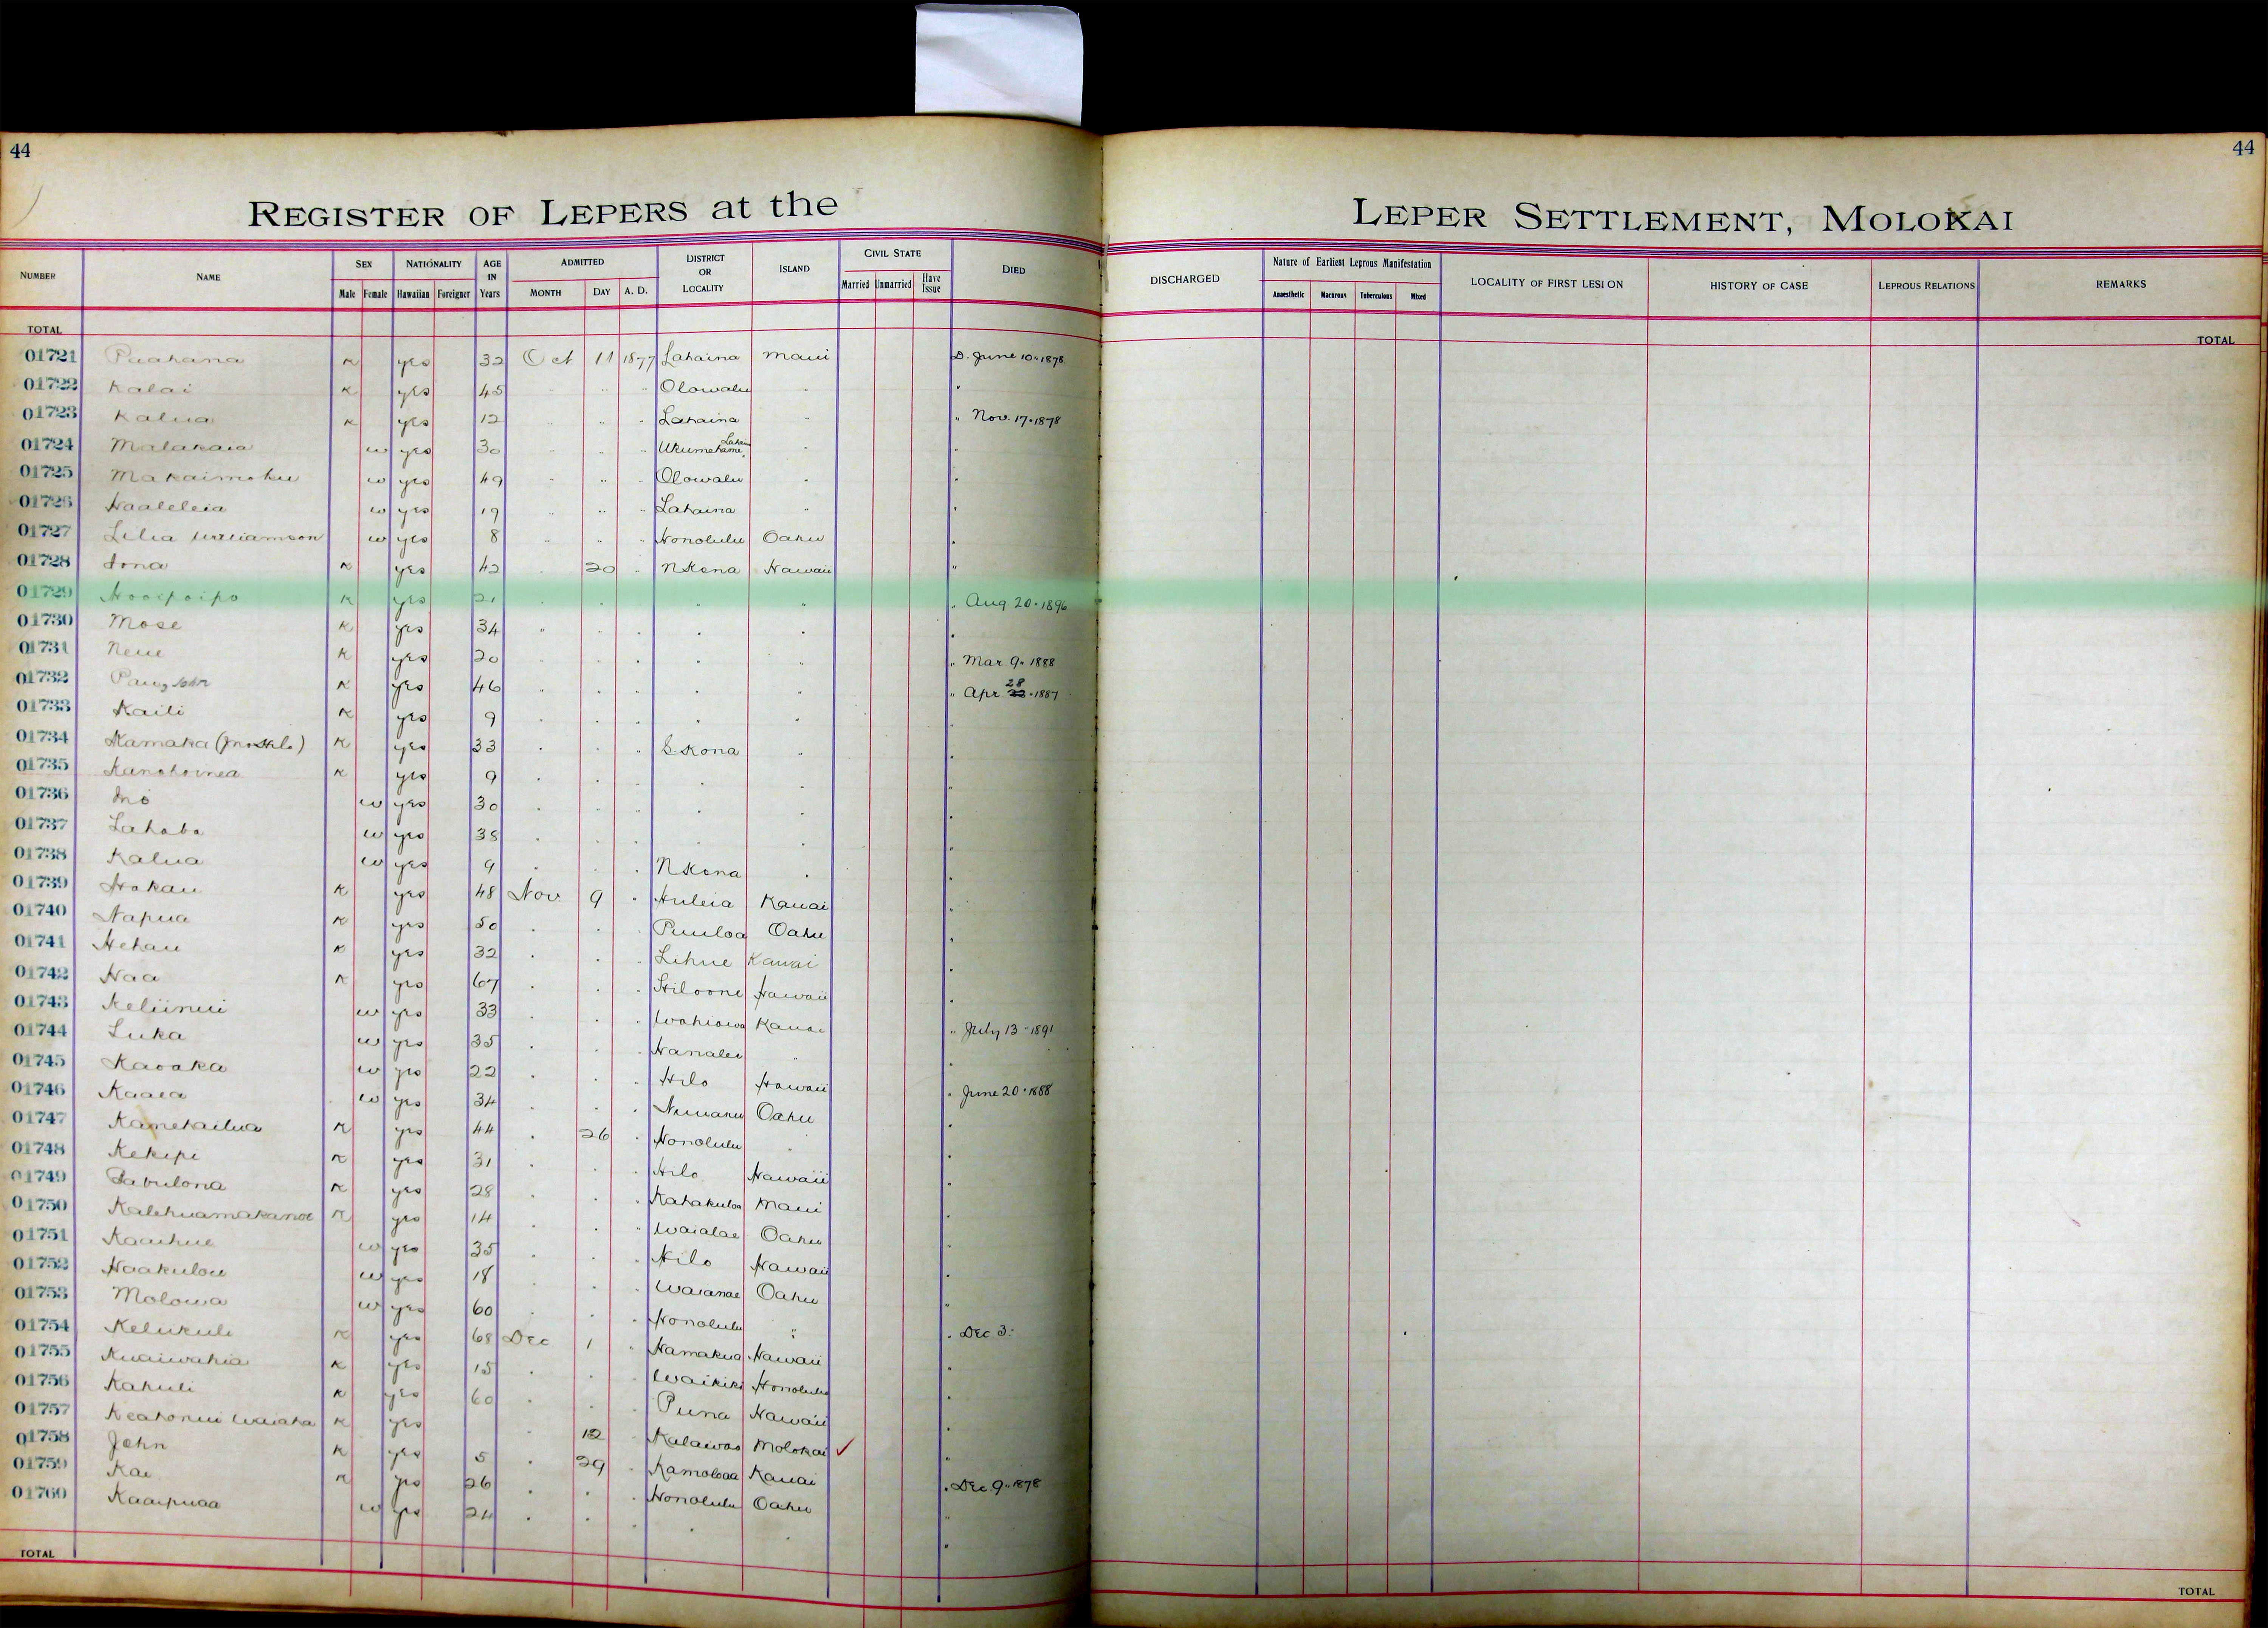 44
44
REGISTER OF LEPERS at the LEPER SETTLEMENT, MOLOKAI
NUMBER NAME SEX NATIONALITY AGE IN Years ADMITTED DISTRICT OR LOCALITY ISLAND CIVIL STATE DIED DISCHARGED Nature of Earliest Leprous Manifestation LOCALITY OF FIRST LESION HISTORY OF CASE LEPROUS RELATIONS REMARKS
Male Female Hawaiian Foreigner MONTH DAY A. D. Married Unmarried Have Issue Anaesthetic Macurous Tuberculous Mixed
TOTAL TOTAL
01721 Puahana K yes 32 Oct 11 1877 Lahaina Maui D. June 10 " 1878
01722 Kalai K yes 45 " " Olowalu " "
01723 Kalua K yes 12 " " " Lahaina " " Nov. 17 " 1878
01724 Malakaia w yes 30 " " " Ukumehame, " "
01725 Makaimoku w yes 49 " " " Olowalu " "
01726 Haaleleia w yes 19 " " " Lahaina " "
01727 Lilia Williamson w yes 8 " " " Honolulu Oahu "
01728 Iona K yes 42 " 20 " N Kona Hawaii "
01729 Hooipoipo K yes 21 " " " " " Aug 20 " 1896
01730 Mose K yes 34 " " " " " "
01731 Neue K yes 20 " " " " " " Mar 9 " 1888
01732 John K yes 46 " " " " " " Apr 28 " 1887
01733 Kaili K yes 9 " " " " " "
01734 Kamaka K yes 33 " " " S. Kona " "
01735 K yes 9 " " " " "
01736 w yes 30 " " " " " "
01737 w yes 38 " " " " "
01738 Kalua w yes 9 " " " N Kona " "
01739 Hokau K yes 48 Nov 9 " Huleia Kauai "
01740 Napua K yes 50 " " " Puuloa Oahu "
01741 Hehau K yes 32 " " " Lihue Kauai "
01742 Naa K yes 67 " " " Hiloone Hawaii "
01743 Keliinui w yes 33 " " " Wahiawa Kauai " July 13 " 1891
01744 Luka w yes 35 " " " Hanalei " "
01745 Kaoaka w yes 22 " " " Hilo Hawaii " June 20 " 1888
01746 Kaaea w yes 34 " " " Nuuanu Oahu "
01747 Kamekailua K yes 44 " 26 " Honolulu " "
01748 Kekipi K yes 31 " " " Hilo Hawaii "
01749 Zabulona K yes 28 " " " Kahakuloa Maui "
01750 Kalehuamakanoe K yes 14 " " " Waialae Oahu "
01751 Kaaihue w yes 35 " " " Hilo Hawaii "
01752 Haakulou w yes 18 " " " Waianae Oahu "
01753 Molowa w yes 60 " " " Honolulu " " Dec 3.
01754 Kelikuli K yes 68 Dec 1 " Hamakua Hawaii "
01755 Kuaiwahia K yes 15 " " " Waikiki Honolulu "
01756 Kahuli K yes 60 " " " Puna Hawaii "
01757 K yes " 12 " Kalawao Molokai ✓ "
01758 John K yes 5 " 29 " Kamoloaa Kauai " Dec 9 " 1878
01759 Kai K yes 26 " " " Honolulu Oahu "
01760 Kaaipuaa w yes 24 " " " " " "
TOTAL TOTAL